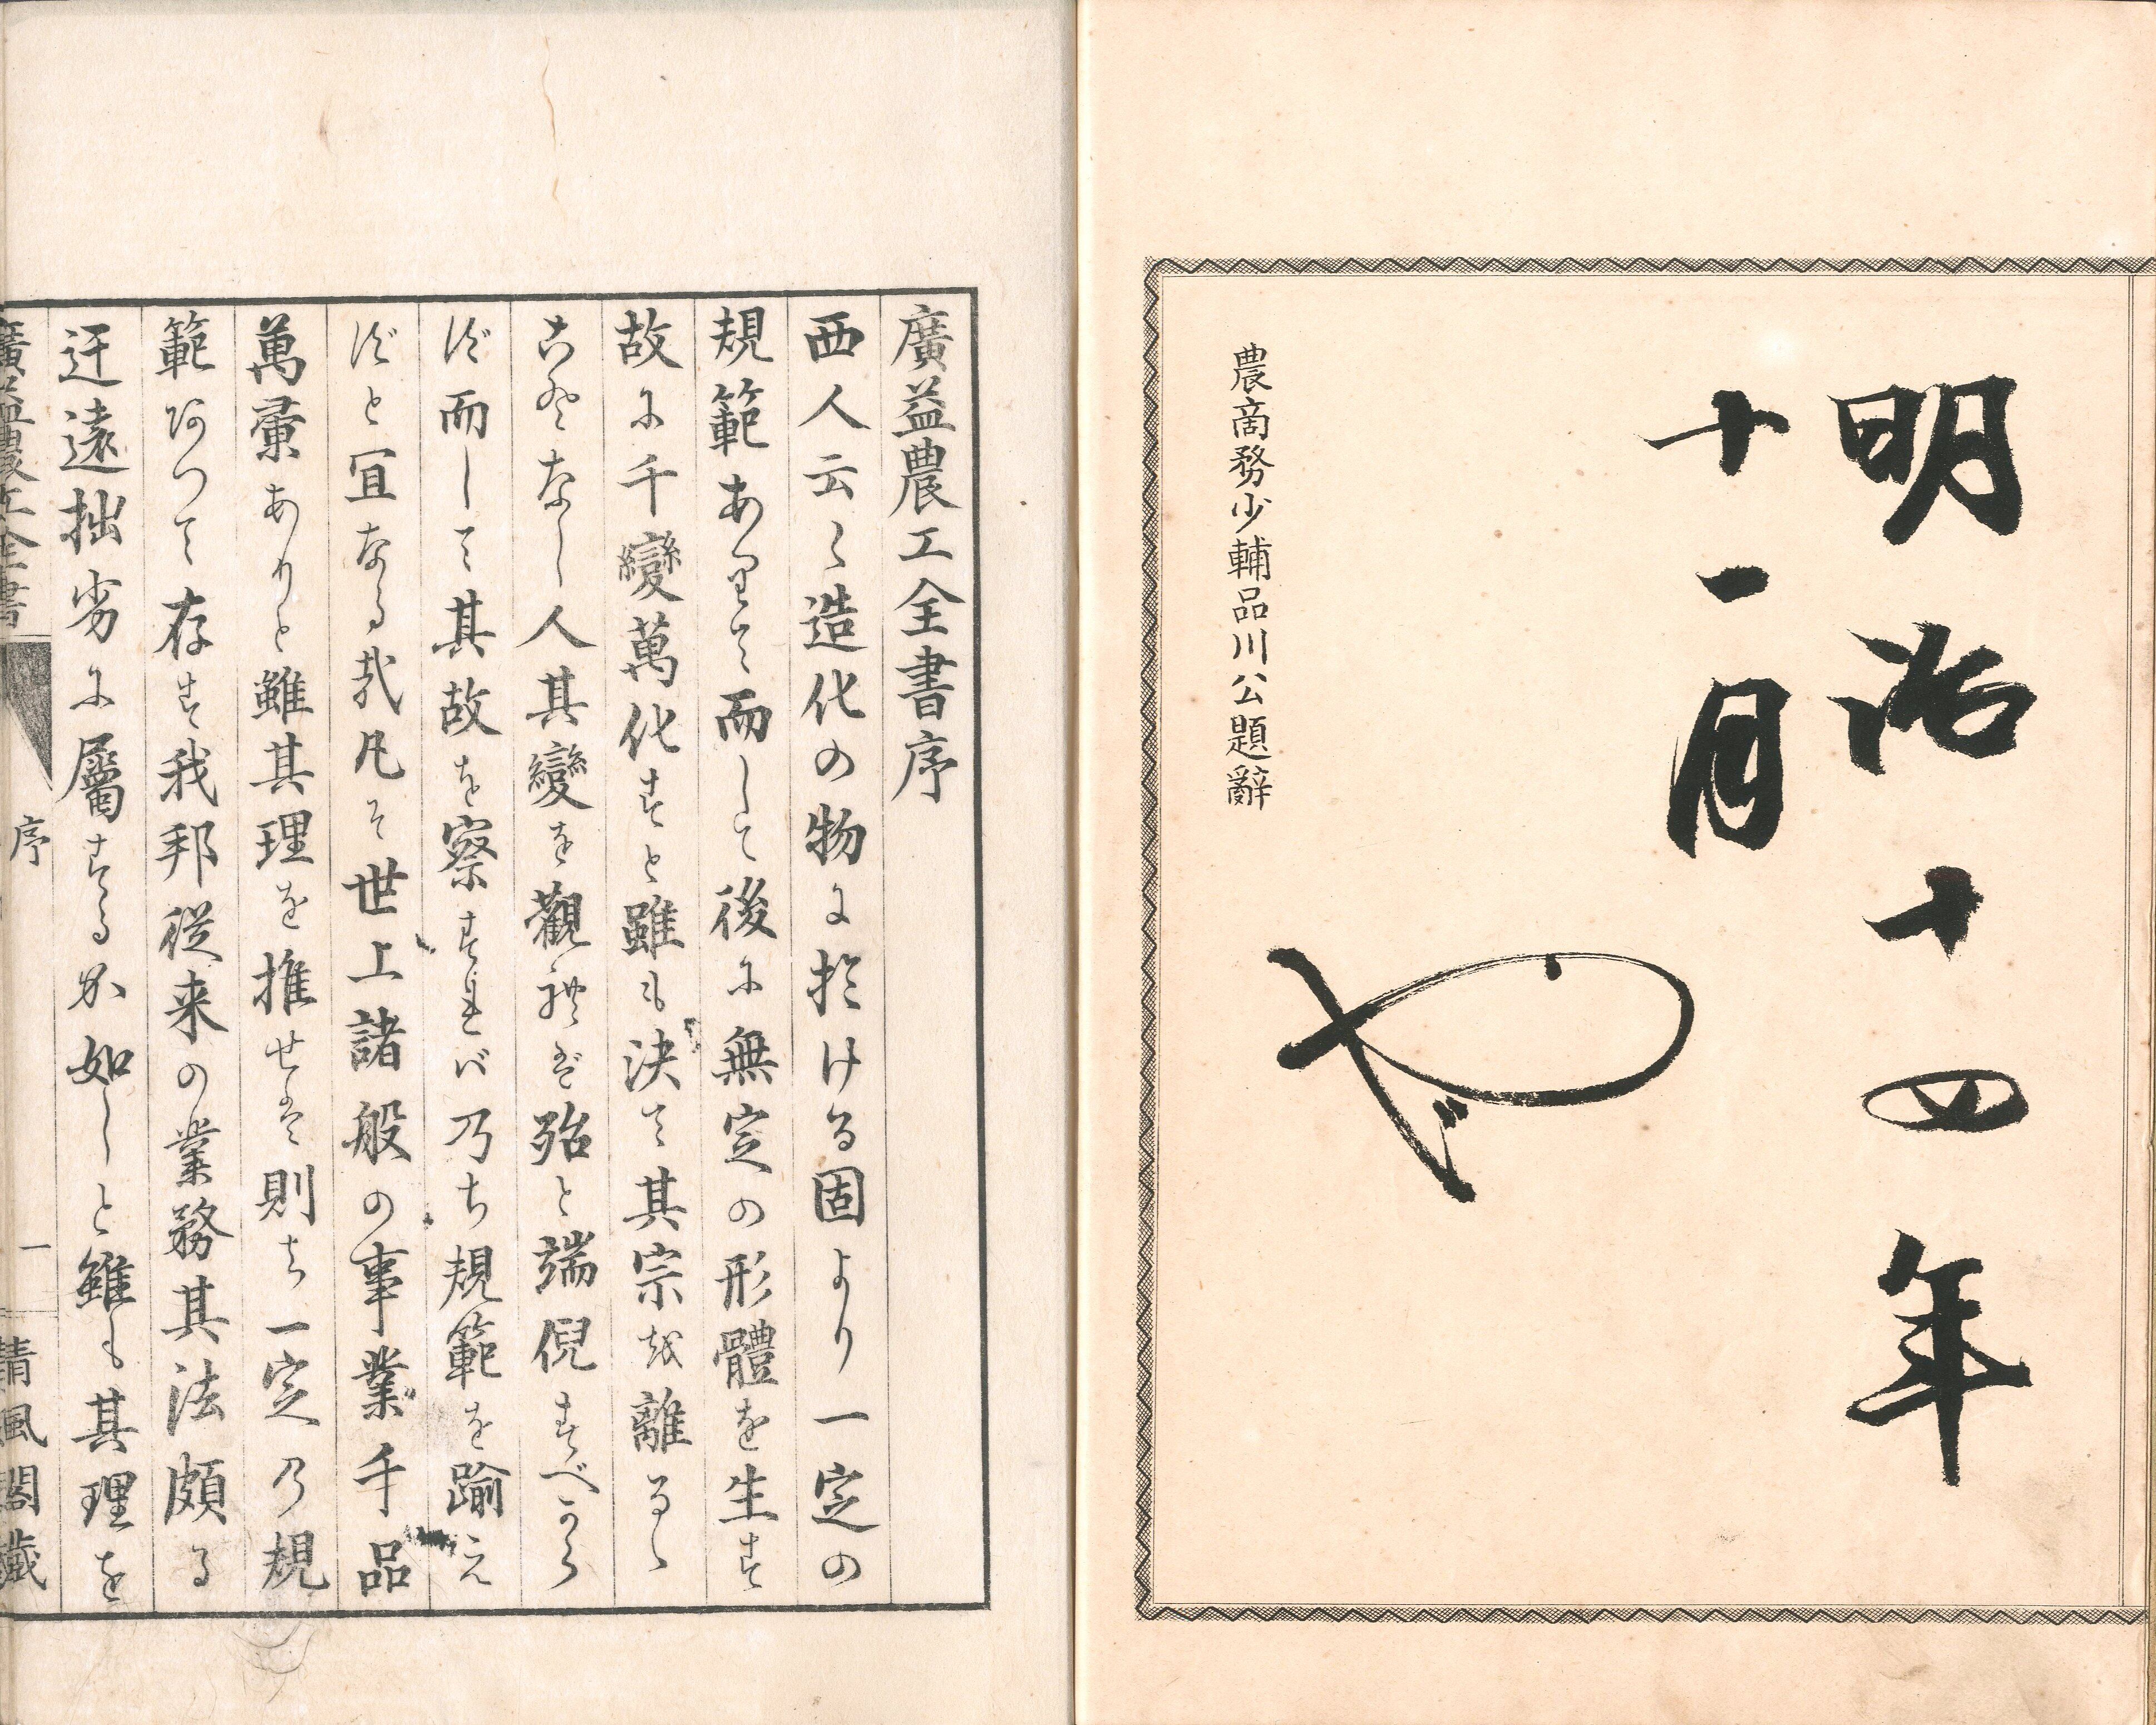 明治十四年
十一月
やじ
農商務少輔品川公題辭
廣益農工全書序
西人云く造化の物に於ける固より一定の
規範ありて而して後に無定の形體を生す
故に千變萬化すと雖も決て其宗を離るゝ
ことなし人其變を觀れば殆と端倪すべから
ず而して其故を察すれバ乃ち規範を踰え
ずと宜なる哉凡そ世上諸般の事業千品
萬彙ありと雖其理を推せば則ち一定の規
範ありて存す我邦従来の業務其法頗る
迂遠拙劣に屬するが如しと雖も其理を
廣益農工全書 序 一 清風閣藏